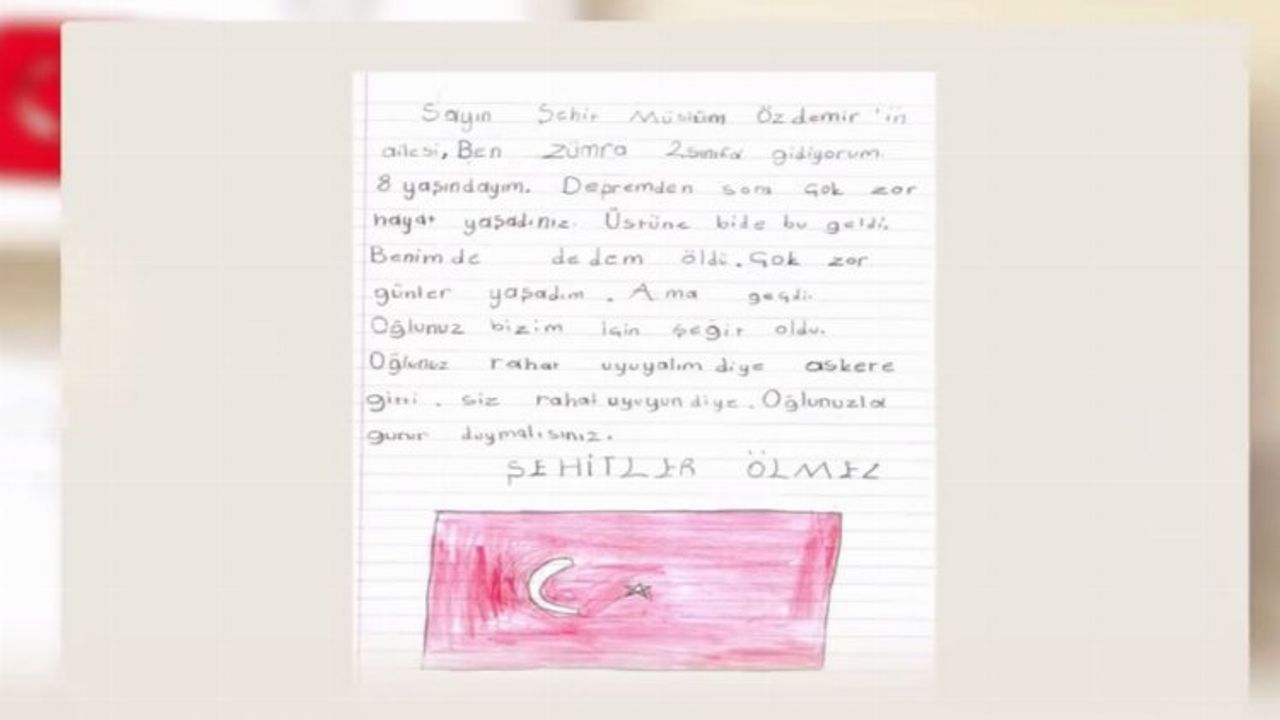 Sayın Şehit Müslüm Özdemir'in
ailesi, Ben Zümra 2.sınıfa gidiyorum.
8 yaşındayım. Depremden sora çok zor
hayat yaşadınız. Üstüne bide bu geldi.
Benim de dedem öldi. Çok zor
günler yaşadım. Ama geçdi.
Oğlunuz bizim için şeğit oldu.
Oğlunuz rahat uyuyalım diye askere
gitti. siz rahat uyuyun diye. Oğlunuzla
gurur duymalısınız.
ŞEHİTLER ÖLMEZ